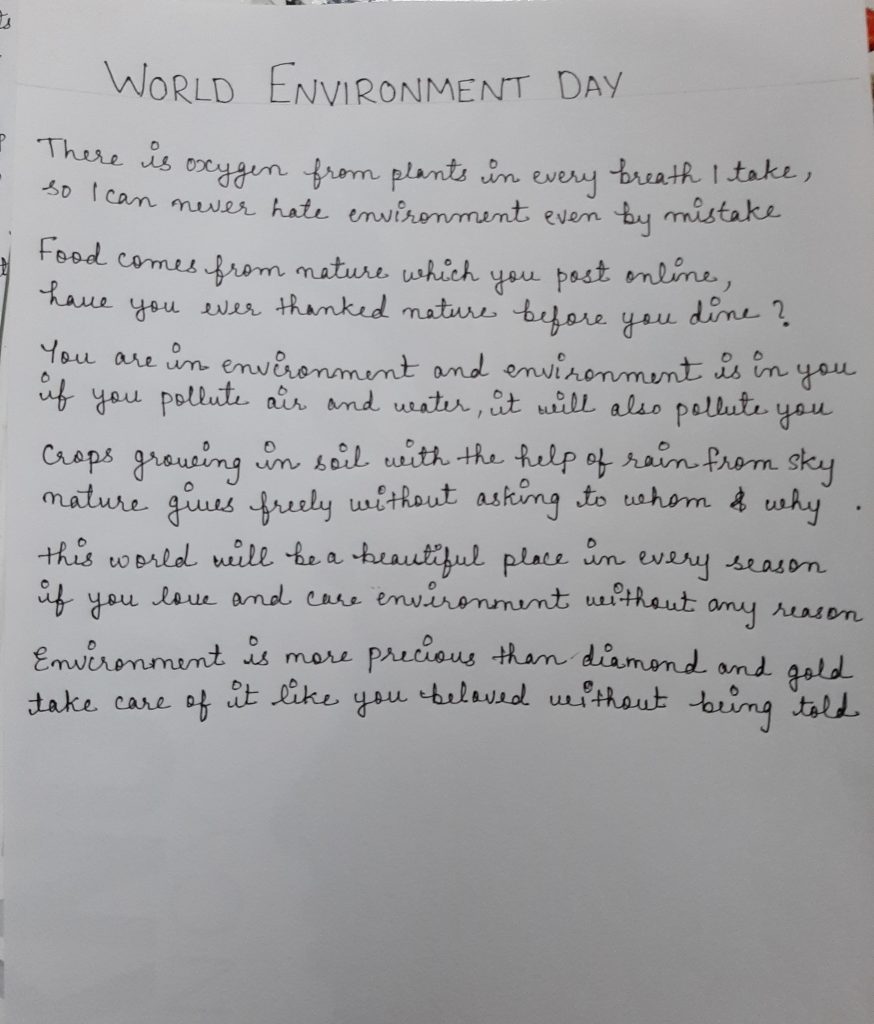 WORLD ENVIRONMENT DAY
There is oxygen from plants in every breath I take,
so I can never hate environment even by mistake
Food comes from nature which you post online,
have you ever thanked nature before you dine?
You are in environment and environment is in you
if you pollute air and water, it will also pollute you
Crops growing in soil with the help of rain from sky
nature gives freely without asking to whom & why.
this world will be a beautiful place in every season
if you love and care environment without any reason
Environment is more precious than diamond and gold
take care of it like you beloved without being told